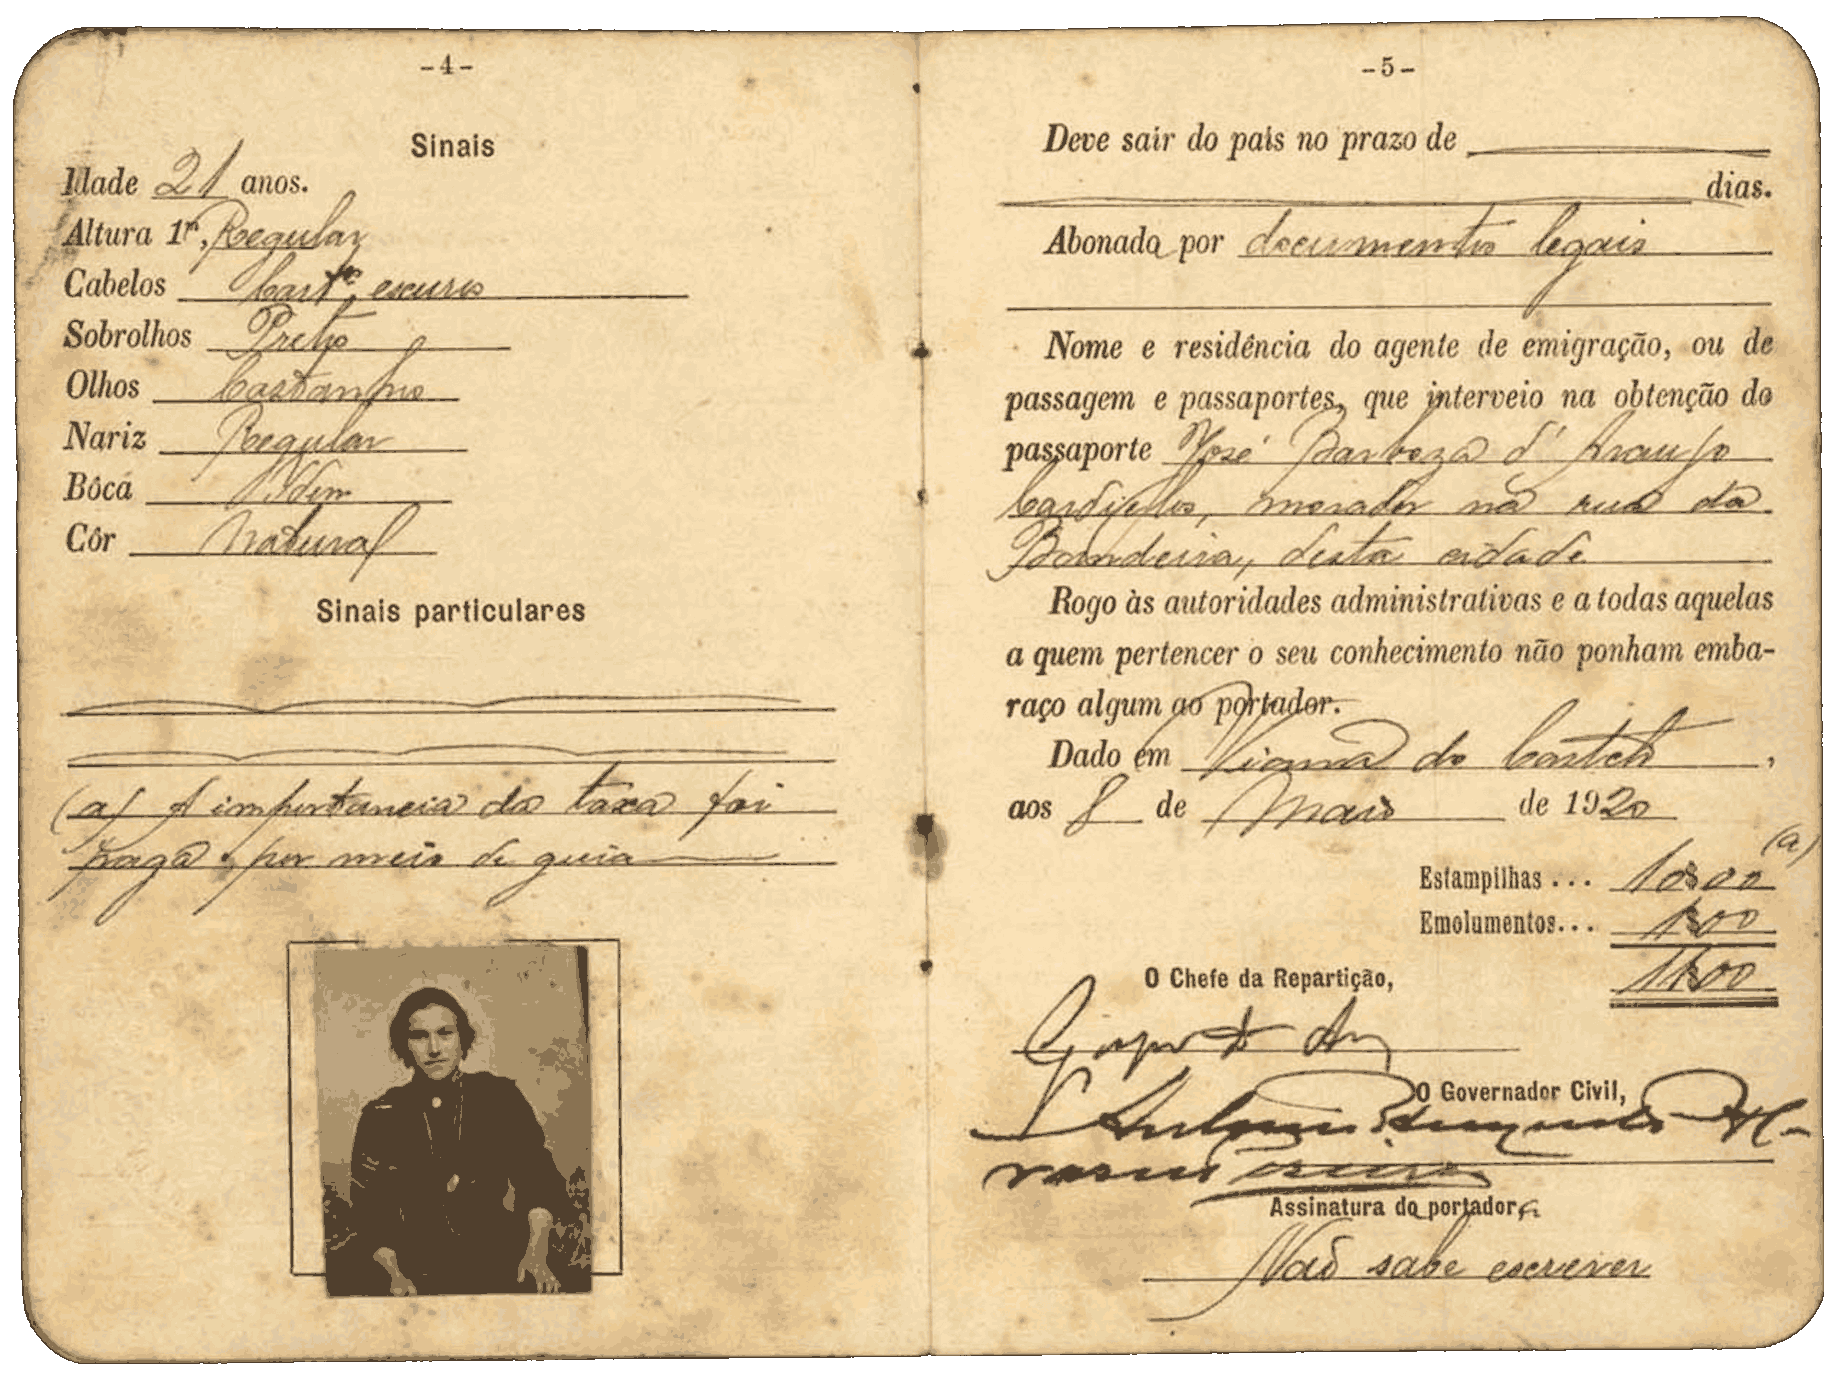 -4-
Sinais
Idade 21 anos.
Altura 1m, Regular
Cabelos Cast.os escuros
Sobrolhos Preto
Olhos Castanho
Nariz Regular
Bôca Idem
Côr Natural
Sinais particulares
(a) A importancia da taxa foi
paga por meio de guia
-5-
Deve sair do país no prazo de
dias.
Abonada por documentos legais
Nome e residência do agente de emigração, ou de
passagem e passaportes, que interveio na obtenção do
passaporte José Barboza d'Araujo
morador na rua da
Bandeira, desta cidade
Rogo às autoridades administrativas e a todas aquelas
a quem pertencer o seu conhecimento não ponham emba-
raço algum ao portador.
Dado em Vianna do Castelo,
aos 8 de Maio de 1920
(a)
Estampilhas ... 10$00
Emolumentos... 1$00
11$00
O Chefe da Repartição,
O Governador Civil,
Assinatura da portadora
Não sabe escrever